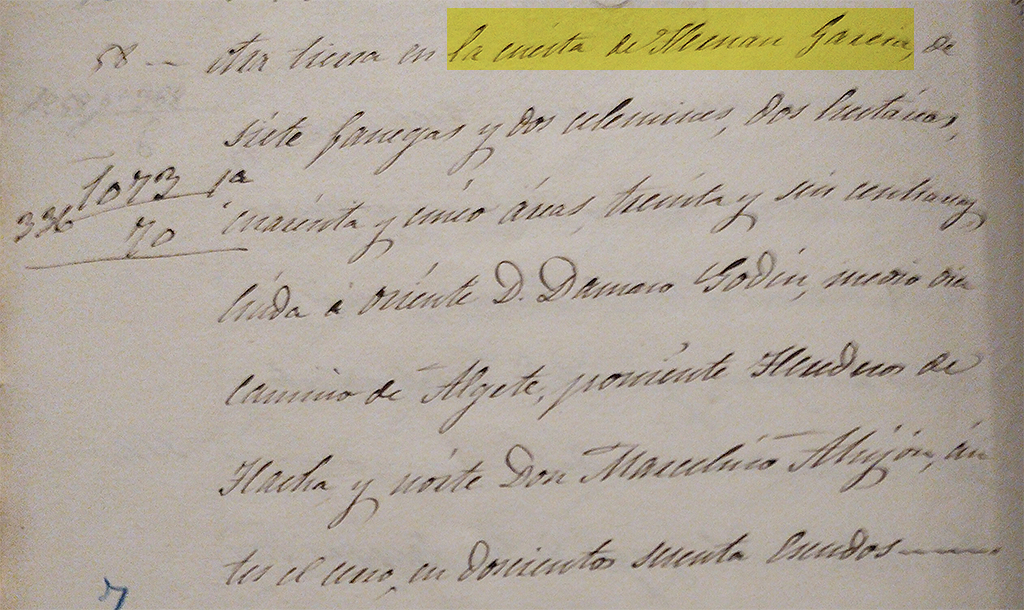 8 — otra tierra en la cuesta de Hernan Garcia, de
siete fanegas y dos celemines, dos hectáreas,
1073 1a
336 70
cuarenta y cinco áreas, treinta y seis centiareas,
linda á oriente D. Damaso Godin, medio dia
camino de Algete, poniente Herederos de
Hacha y nórte Don Marcelino Mijón, án
tes el cura, en doscientos sesenta Escudos
7